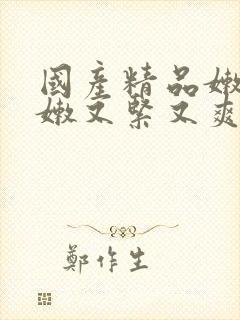 國產精品嫩
嫩又緊又爽
鄭作生